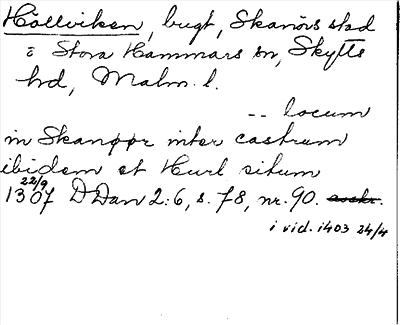 Höllviken, bugt, Skanörs stad
& Stora Hammars sn, Skytts
hd, Malm. l.
-- locum
in Skanøør inter castrum
ibidem et Hurl situm
22/9
1307 DDan 2:6, s. 78, nr. 90. avskr.
i vid. 1403 24/4